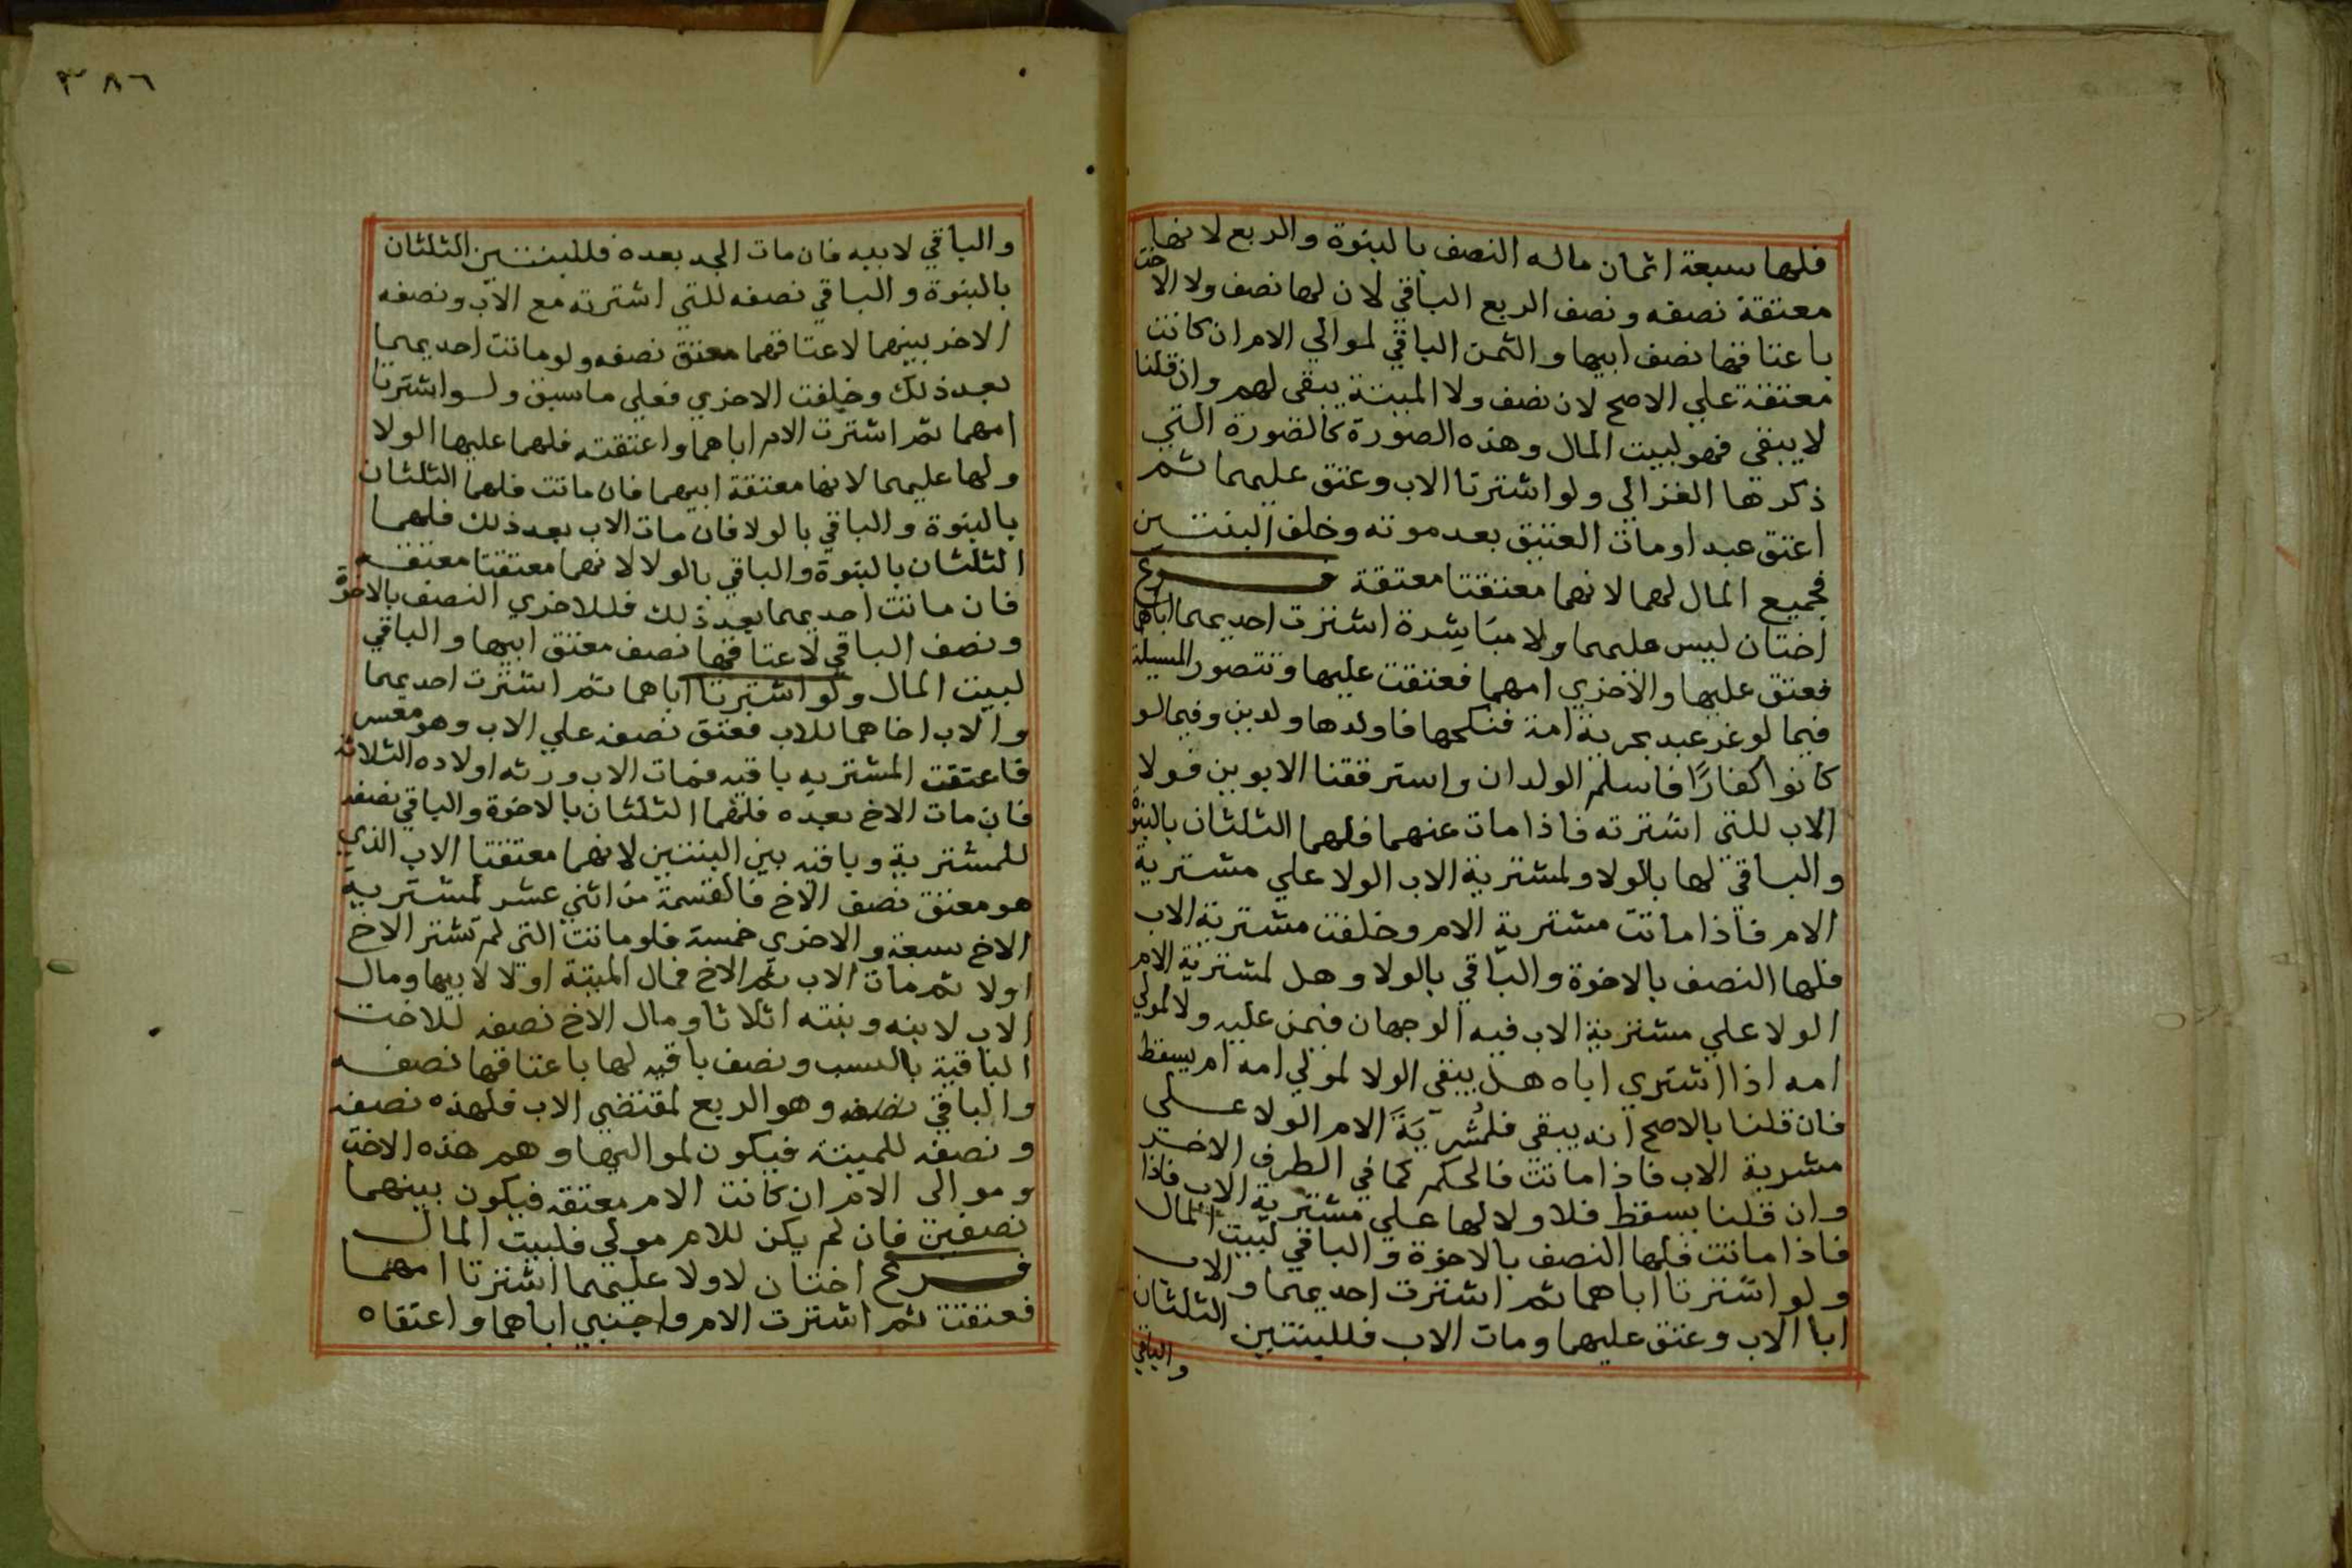 فلها سبعة اثمان ماله النصف بالبنوة والربع لانها
معتقة نصفه ونصف الربع الباقي لان لها نصف ولا الاخت
باعتاقها نصف ابيها والثمن الباقي لموالي الام ان كانت
معتقة علي الاصح لان نصف ولا الميتة يبقى لهم وان قلنا
لا يبقي فهو لبيت المال وهذه الصورة كالصورة التي
ذكرها الغزالي ولو اشترتا الاب وعتق عليهما ثم
اعتق عبدا ومات العتيق بعد موته وخلف البنتين
فجميع المال لهما لانهما معتقتا معتقة فرع
اختان ليس عليهما ولا مباشرة اشترت احديهما اباهما
فعتق عليها والاخري امهما فعتقت عليها وتتصور المسيلة
فيما لو غر عبد بحرية امة فنكحها فاولدها ولدين وفيما لو
كانوا كفارًا فاسلم الولدان واسترققنا الابوين فولا
الاب للتي اشترته فاذا مات عنهما فلهما الثلثان بالبنوة
والباقي لها بالولا ولمشترية الاب الولا علي مشترية
الام فاذا ماتت مشترية الام وخلفت مشترية الاب
فلها النصف بالاخوة والباقي بالولا وهل لمشترية الام
الولا علي مشترية الاب فيه الوجهان فيمن عليه ولا لموالي
امه اذا اشتري اباه هل يبقي الولا لموالي امه ام يسقط
فان قلنا بالاصح انه يبقي فلمشرية الام الولا علي
مشرية الاب فاذا ماتت فالحكم كما في الطرف الاخير
وان قلنا يسقط فلا ولا لها علي مشترية الاب فاذا
فاذا ماتت فلها النصف بالاخوة والباقي لبيت المال
ولو اشترتا اباهما ثم اشترت احديهما والاب
ابا الاب وعتق عليهما ومات الاب فللبنتين الثلثان
والباقي
٣٨٦
والباقي لابيه فان مات الجد بعده فللبنتين الثلثان
بالبنوة والباقي نصفه للتي اشترته مع الاب ونصفه
الاخر بينهما لاعتاقهما معتق نصفه ولو ماتت احديهما
بعد ذلك وخلفت الاخري فعلي ما سبق ولو اشترتا
امهما ثم اشترت الام اباهما واعتقته فلهما عليها الولا
ولها عليهما لانها معتقة ابيهما فان ماتت فلهما الثلثان
بالبنوة والباقي بالولا فان مات الاب بعد ذلك فلهما
الثلثان بالبنوة والباقي بالولا لانهما معتقتا معتقه
فان ماتت احديهما بعد ذلك فللاخري النصف بالاخوة
ونصف الباقي لاعتاقها نصف معتق ابيها والباقي
لبيت المال ولو اشترتا اباهما ثم اشترت احديهما
والاب اخاهما للاب فعتق نصفه علي الاب وهو معسر
فاعتقت المشتريه باقيه فمات الاب ورثه اولاده الثلاثة
فان مات الاخ بعده فلهما الثلثان بالاخوة والباقي نصفه
للمشترية وباقيه بين البنتين لانهما معتقتا الاب الذي
هو معتق نصف الاخ فالقسمة من اثني عشر لمشترية
الاخ سبعة والاخري خمسة فلو ماتت التي لم تشتر الاخ
اولا ثم مات الاب ثم الاخ فمال الميتة اولا لابيها ومال
الاب لابنه وبنته اثلاثا ومال الاخ نصفه للاخت
الباقية بالنسب ونصف باقيه لها باعتاقها نصفه
والباقي نصفه وهو الربع لمقتضي الاب فلهذه نصفه
ونصفه للميتة فيكون لمواليها وهم هذه الاخت
وموالى الام ان كانت الام معتقه فيكون بينهما
نصفين فان لم يكن للام موالي فلبيت المال
فرع اختان لا ولا عليهما اشترتا امهما
فعتقت ثم اشترت الام واجنبي اباهما واعتقاه